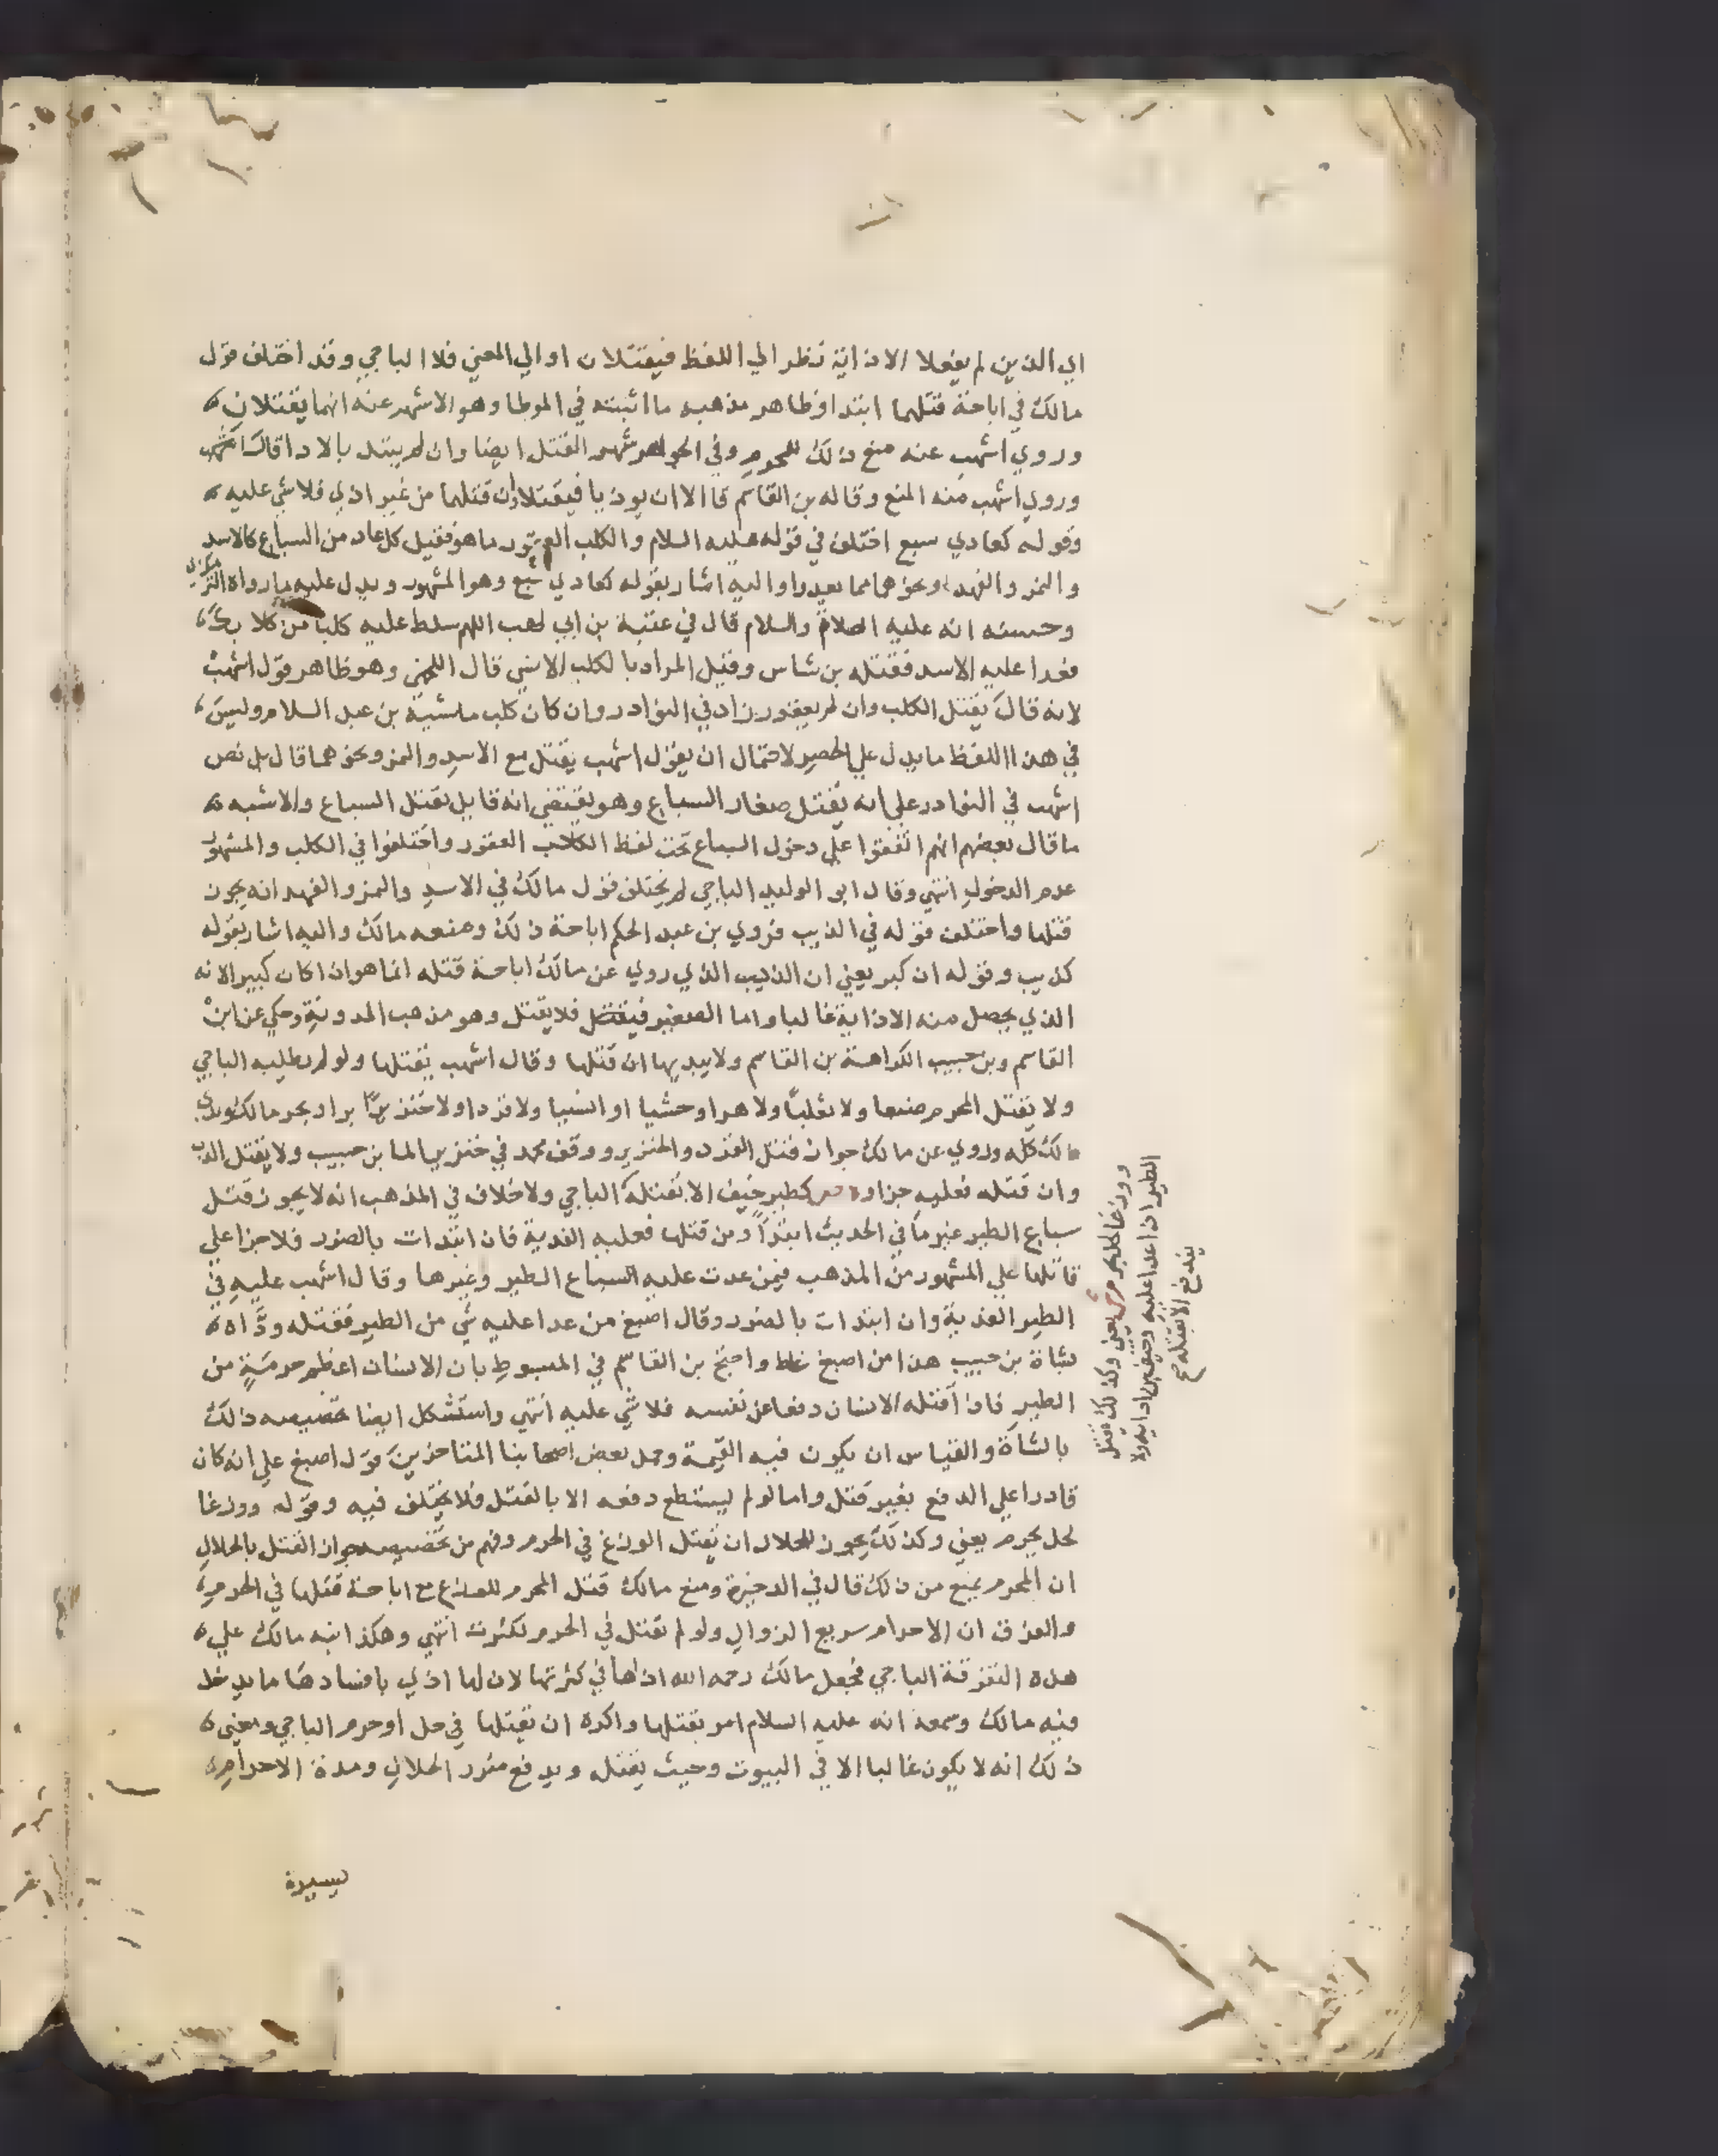 الي الذين لم يفعلا الاذاية نظر الي اللفظ فيقتلان او الي المعني فلا الباجي وقد اختلف قول
مالك في اباحة قتلهما ابتدا وظاهر مذهبه ما اثبته في الموطا وهو الاشهر عنه انهما يقتلان
وروي اشهب عنه منع ذلك للمحرم وفي الجواهر شهر القتل ايضا وان لم يبتد بالاذا قال اشهب
وروي اشهب منه المنع وقاله بن القاسم قالا الا ان يوذيا فيقتلا وان قتلهما من غير اذي فلا شي عليه
وقوله كعادي سبع اختلف في قوله عليه السلام والكلب العقور ما هو فقيل كل عاد من السباع كالاسد
والنمر والفهد ونحوهما مما يعدوا واليه اشار بقوله كعادي سبع وهو المشهور ويدل عليه ما رواه الترمذي
وحسنه انه عليه الصلاة والسلام قال في عتبة بن ابي لهب اللهم سلط عليه كلبا من كلابك
فعدا عليه الاسد فقتله بن شاس وقيل المراد بالكلب الانسي قال اللخمي وهو ظاهر قول اشهب
لانه قال يقتل الكلب وان لم يعقر وزاد في النوادر وان كان كلب ماشية بن عبد السلام وليس
في هذا اللفظ ما يدل علي الحصر لاحتمال ان يقول اشهب يقتل مع الاسد والنمر ونحوهما قال بل نص
اشهب في النوادر علي انه يقتل صغار السباع وهو يقتضي انه قايل بقتل السباع والاشبه
ما قال بعضهم انهم اتفقوا علي دخول السباع تحت لفظ الكلب العقور واختلفوا في الكلب والمشهور
عدم الدخول انتهي وقال ابو الوليد الباجي لم يختلف قول مالك في الاسد والنمر والفهد انه يجوز
قتلها واختلف قوله في الذيب فروي بن عبد الحكم اباحة ذلك ومنعه مالك واليه اشار بقوله
كذيب وقوله ان كبر يعني ان الذيب الذي روي عن مالك اباحة قتله انما هو اذا كان كبيرا لانه
الذي يحصل منه الاذاية غالبا واما الصغير فيقتل فلا يقتل وهو مذهب المدونة وحكي عن ابن
القاسم وبن حبيب الكراهة بن القاسم ولا يبديها ان قتلها وقال اشهب يقتلها ولو لم يطلبه الباجي
ولا يقتل المحرم ضبعا ولا ثعلبا ولا هرا وحشيا او انسيا ولا قردا ولا خنزيرا برا وبحر مالك ويدي
ذلك كله وروي عن مالك جواز قتل القرد والخنزير ووقف محمد في خنزير الما بن حبيب ولا يقتل الدب
وان قتله فعليه جزاوه ص كطير خيف الا بقتله الباجي ولا خلاف في المذهب انه لا يجوز قتل
سباع الطير غير ما في الحديث ابتدا ومن قتلها فعليه الفدية فان ابتدات بالضرر فلا جزا علي
قاتلها علي المشهور من المذهب فيمن عدت عليه السباع الطير وغيرها وقال اشهب عليه في
الطير الفدية وان ابتدات بالضرر وقال اصبغ من عدا عليه شي من الطير فقتله وداه
بشاة بن حبيب هذا من اصبغ غلط واحتج بن القاسم في المبسوط بان الانسان اعظم حرمة من
الطير فاذا قتله الانسان دفعا عن نفسه فلا شي عليه انتهي واستشكل ايضا تخصيصه ذلك
بالشاة والقياس ان يكون فيه القيمة وحمل بعض اصحابنا المتاخرين قول اصبغ علي انه كان
قادرا علي الدفع بغير قتل واما لو لم يستطع دفعه الا بالقتل فلا يختلف فيه وقوله ووزغا
لحل بحرم يعني وكذلك يجوز للحلال ان يقتل الوزغ في الحرم وفهم من تخصيصه جواز القتل بالحلال
ان المحرم يمنع من ذلك قال في الذخيرة ومنع مالك قتل المحرم للوزغ مع اباحة قتلها في الحرم
والفرق ان الاحرام سريع الزوال ولو لم تقتل في الحرم لكثرت انتهي وهكذا نبه مالك علي
هذه التفرقة الباجي فجعل مالك رحمه الله اذاها في كثرتها لان لها اذي بافسادها ما يدخل
فيه مالك وسمعة انه عليه السلام امر بقتلها واكره ان يقتلها في حل او حرم الباجي ومعني
ذلك انه لا يكون غالبا الا في البيوت وحيث يقتله ويدفع مضرر الحلال ومدة الاحرام
يسيرة
ووزغا لحل بحرم ش يعني وكذلك يقتل
الطير اذا عدا عليه وخيف من اذايه ولا
يندفع الا بقتله صح